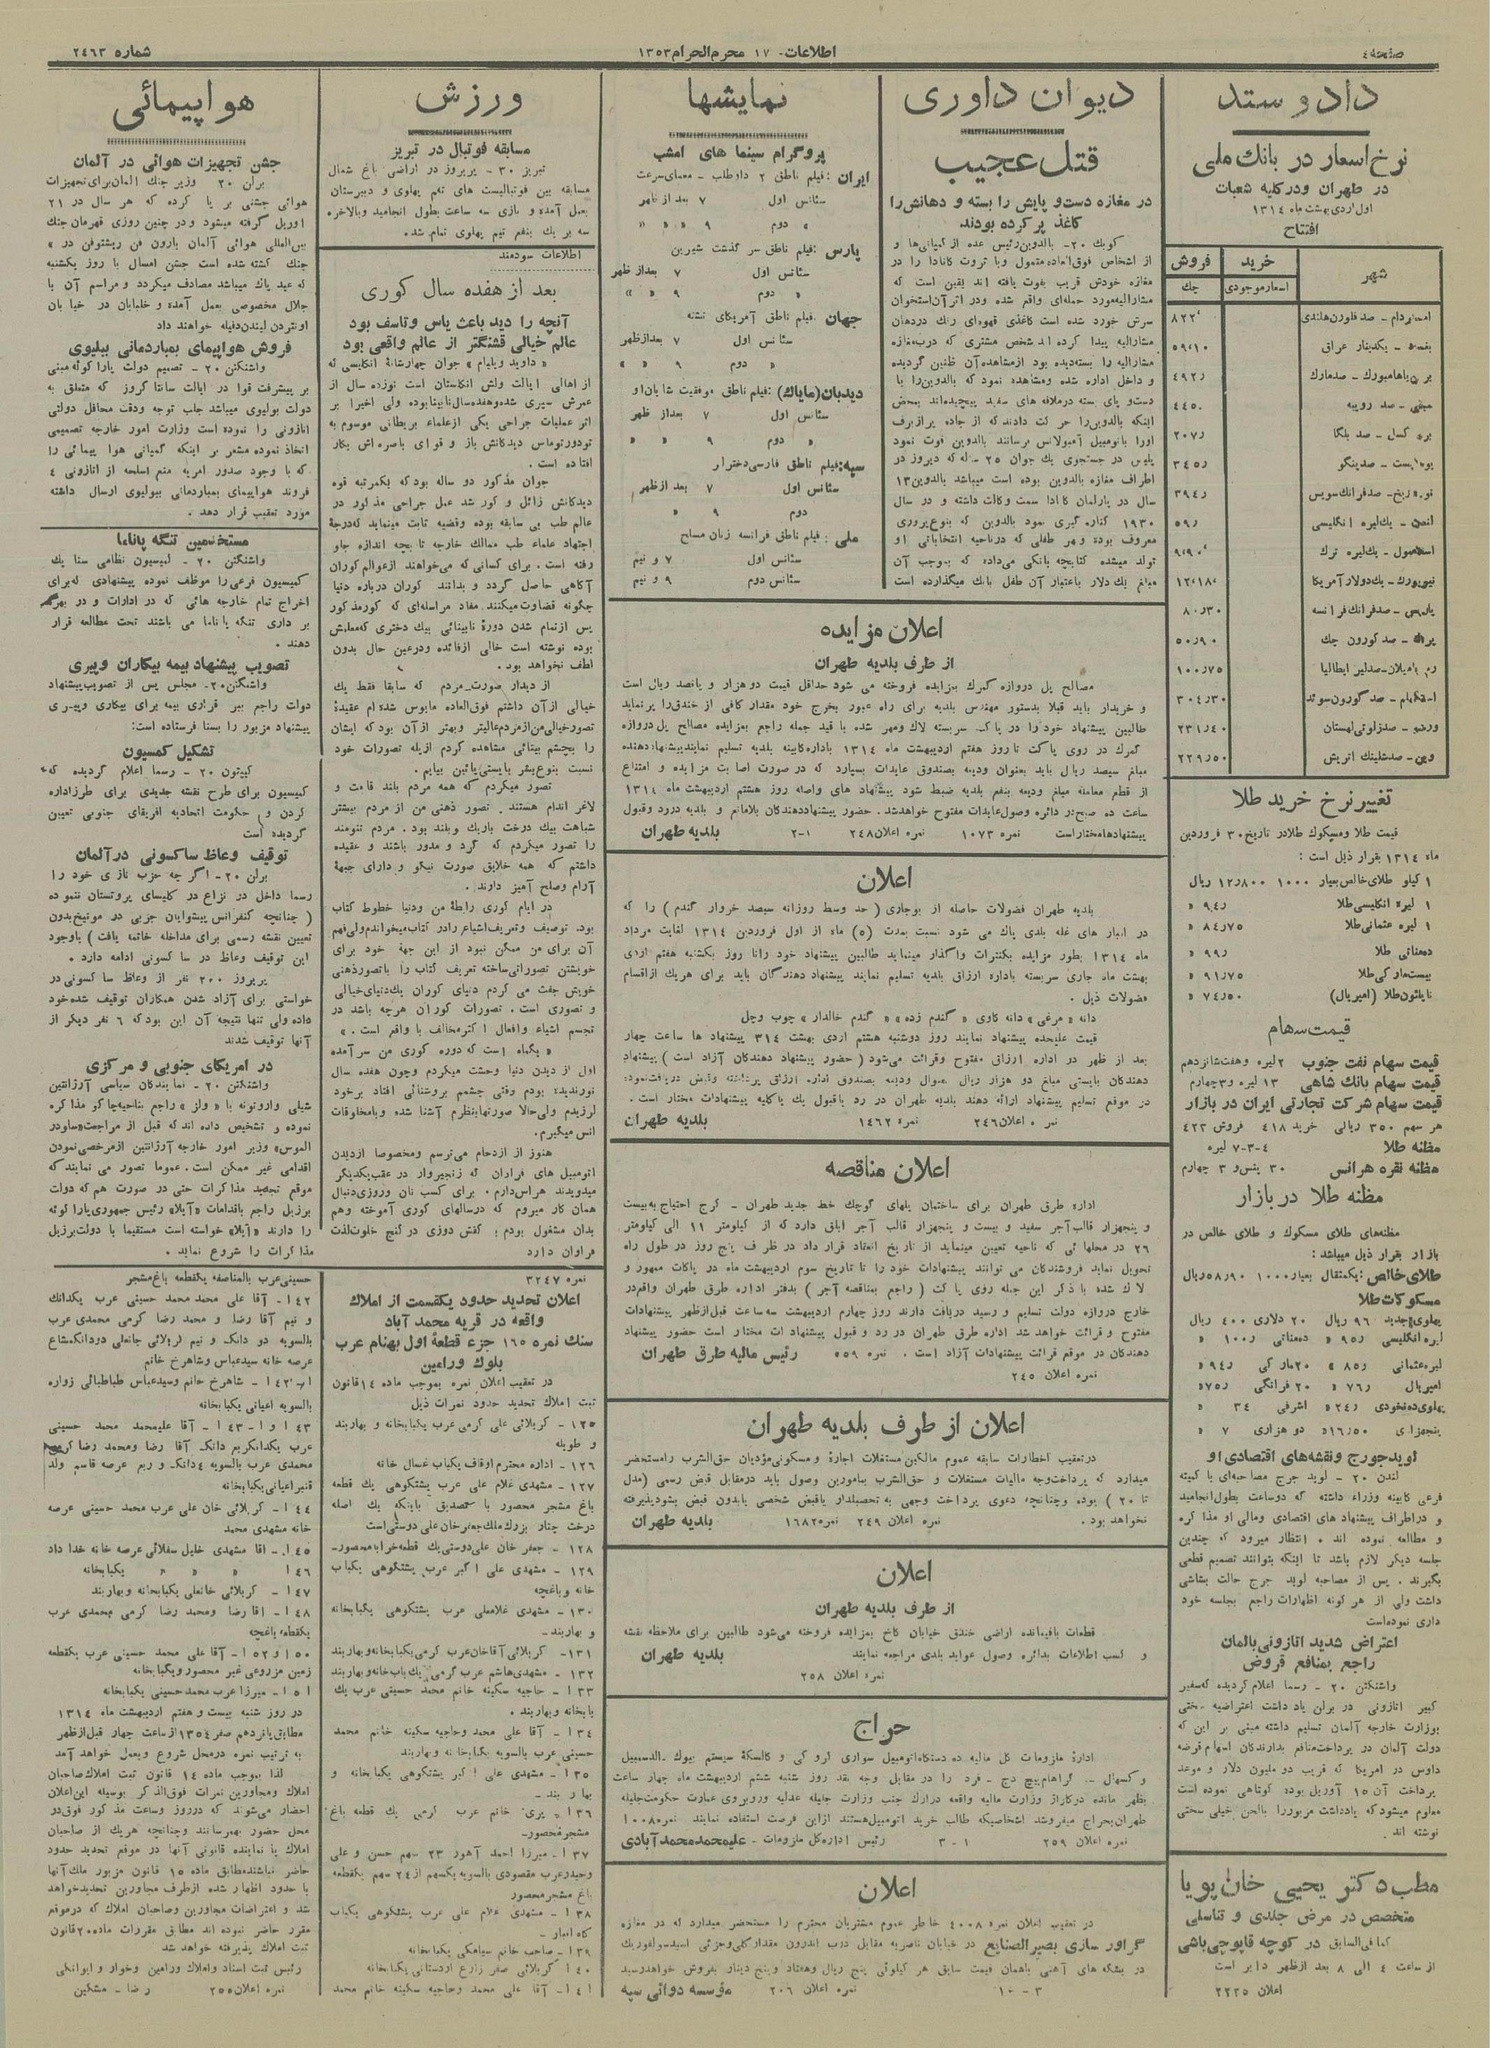 صفحه ٤
اطلاعات - ١٧ محرم الحرام ١٣٥٣
شماره ٢٤٦٣
داد و ستد
نرخ اسعار در بانك ملی
در طهران و در كلیه شعبات
اول اردی بهشت ماه ١٣١٤
افتتاح
شهر
خرید
فروش
اسعار موجودی
چك
بغداد - یكدینار عراقی
ممبئی - صد روپیه ٤٤٥
لندن - یك لیره انگلیسی
اسلامبول - یك لیره ترك
نیویورك - یك دولار آمریكا
پاریس - صد فرانك فرانسه ٨٠٫٣٠
پراگ - صد كورون چك ٥٠٫٩٠
رم یا میلان - صد لیر ایطالیا ١٠٠٫٧٥
استكهلم - صد كورون سوئد ٣٠٤٫٣٠
ورشو - صد زلوتی لهستان ٢٣١٫٤٠
وین - صد شلینك اتریش ٢٢٩٫٥٠
تغییر نرخ خرید طلا
قیمت طلا و مسكوك طلا در تاریخ ٣٠ فروردین
ماه ١٣١٤ بقرار ذیل است :
١ كیلو طلای خالص بعیار ١٠٠٠ ١٢٫٨٠٠ ریال
١ لیره انگلیسی طلا ٩٤٫ «
١ لیره عثمانی طلا ٨٤٫٧٥ «
ده مناتی طلا ٩٩٫ «
بیست ماركی طلا ٩١٫٧٥ «
ناپلئون طلا (امپریال) ٧٤٫٥٠ «
قیمت سهام
قیمت سهام نفت جنوب ٢ لیره و هفت شانزدهم
قیمت سهام بانك شاهی ١٣ لیره و ٣ چهارم
قیمت سهام شركت تجارتی ایران در بازار
هر سهم ٣٥٠ ریالی خرید ٤١٨ فروش ٤٢٣
مظنه طلا ٤-٣-٧ لیره
مظنه نقره هر انس ٣٠ پنس و ٣ چهارم
مظنه طلا در بازار
مظنه های طلای مسكوك و طلای خالص در
بازار بقرار ذیل میباشد:
طلای خالص: یكمثقال بعیار ١٠٠٠ ٥٨٫٩٠ ریال
مسكوكات طلا
پهلوی جدید ٩٦ ریال ٢٠ دلاری ٤٠٠ ریال
لیره انگلیسی ٩٥٫ « ده مناتی ١٠٠٫ «
لیره عثمانی ٨٥٫ « ٢٠ ماركی ٩٤٫ «
امپریال ٧٦٫ « ٢٠ فرانكی ٧٥٫ «
پهلوی ده نخودی ٢٤٫ « اشرفی ٣٤ «
پنجهزاری ١٦٫٥٠ « دو هزاری ٧ «
لوید جورج و نقشه های اقتصادی او
لندن ٢٠ - لوید جرج مصاحبه ای با كمیته
فرعی كابینه وزراء داشته كه دو ساعت بطول انجامید
و در اطراف پیشنهاد های اقتصادی و مالی او مذا كره
و مطالعه نموده اند . انتظار میرود كه چندین
جلسه دیگر لازم باشد تا اینكه بتوانند تصمیم قطعی
بگیرند . پس از مصاحبه لوید جرج حالت بشاشی
داشت ولی از هر گونه اظهارات راجع بجلسه خود
داری نموده است
اعتراض شدید اتازونی بالمان
راجع بمنافع قروض
واشنگتن ٢٠ - رسما اعلام گردیده كه سفیر
كبیر اتازونی در برلن یاد داشت اعتراضیه سختی
بوزارت خارجه آلمان تسلیم داشته مبنی بر این كه
دولت آلمان در پرداخت منافع بدارندگان اسهام قرضه
داوس در امریكا كه قریب دو ملیون دلار و موعد
پرداخت آن ١٥ آوریل بوده كوتاهی نموده است
معلوم میشود كه یادداشت مزبور را بالحن خیلی سختی
نوشته اند .
مطب دكتر یحیی خان پویا
متخصص در مرض جلدی و تناسلی
كما فی السابق در كوچه قاپوچی باشی
از ساعت ٤ الی ٨ بعد از ظهر دایر است
اعلان ٢٢٢٥
دیوان داوری
قتل عجیب
در مغازه دست و پایش را بسته و دهانش را
كاغذ پر كرده بودند
كوبك ٢٠- بالدوین رئیس عده از كمپانی ها و
از اشخاص فوق العاده متمول و با ثروت كانادا را در
مغازه خودش قریب بفوت یافته اند یقین است كه
مشارالیه مورد حمله ای واقع شده و در اثر آن استخوان
سرش خورد شده است كاغذی قهوه ای رنك در دهان
مشارالیه پیدا كرده اند شخص مشتری كه درب مغازه
مشارالیه را بسته دید بود از مشاهده آن ظنین گردیده
و داخل اداره شده و مشاهده نمود كه بالدوین را با
دست و پای بسته در ملافه های سفید پیچیده اند بمحض
اینكه بالدوین را حر كت دادند كه از جاده پر از برف
او را باتومبیل آمبولانس برسانند بالدوین فوت نمود
پلیس در جستجوی یك جوان ٢٥ ساله كه دیروز در
اطراف مغازه بالدوین بوده است میباشد بالدوین ١٣
سال در پارلمان كانادا سمت وكالت داشته و در سال
١٩٣٠ كناره گیری نمود بالدوین كه بنوع پروری
معروف بوده و هر طفلی كه در ناحیه انتخاباتی او
تولد میشده كتابچه بانكی می داده كه بموجب آن
مبلغ یك دلار باعتبار آن طفل بانك میگذارده است
نمایشها
پروگرام سینما های امشب
ایران : فیلم ناطق ٢ داوطلب - معمای سرعت
سئانس اول ٧ بعد از ظهر
« دوم ٩ « «
پارس : فیلم ناطق سر گذشت شیرین
سئانس اول ٧ بعد از ظهر
« دوم ٩ « «
جهان : فیلم ناطق آمریكای تشنه
سئانس اول ٧ بعد از ظهر
« دوم ٩ « «
دیدبان (مایاك) : فیلم ناطق موفقیت شایان او
سئانس اول ٧ بعد از ظهر
« دوم ٩ « «
سپه: فیلم ناطق فارسی دختر لر
سئانس اول ٧ بعد از ظهر
دوم ٩ «
ملی : فیلم ناطق فرانسه زنان مسلح
سئانس اول ٧ و نیم
سئانس دوم ٩ و نیم
اعلان مزایده
از طرف بلدیه طهران
مصالح پل دروازه گمرك بمزایده فروخته می شود حداقل قیمت دو هزار و پانصد ریال است
و خریدار باید قبلا بدستور مهندس بلدیه برای راه عبور بخرج خود مقدار كافی از خندق را پر نماید
طالبین پیشنهاد خود را در پاكت سربسته لاك و مهر شده با قید جمله راجع بمزایده مصالح پل دروازه
گمرك در روی پا كت تا روز هفتم اردیبهشت ماه ١٣١٤ باداره كابینه بلدیه تسلیم نمایند پیشنهاد دهنده
مبلغ سیصد ریال باید بعنوان ودیعه بصندوق عایدات بسپارد كه در صورت اصا بت مزایده و امتناع
از قطع معامله مبلغ ودیعه بنفع بلدیه ضبط شود پیشنهاد های واصله روز هشتم اردیبهشت ماه ١٣١٤
ساعت ده صبح در دائره وصول عایدات مفتوح خواهد شد . حضور پیشنهاد دهندگان بلامانع و بلدیه در رد و قبول
پیشنهادها مختار است نمره ١٠٧٣ نمره اعلان ٢٤٨ ١-٢ بلدیه طهران
اعلان
بلدیه طهران فضولات حاصله از بوجاری ( حد وسط روزانه سیصد خروار گندم ) را كه
در انبار های غله بلدی پاك می شود نسبت بمدت (٥) ماه از اول فروردین ١٣١٤ لغایت مرداد
ماه ١٣١٤ بطور مزایده بكنترات واگذار مینماید طالبین پیشنهاد خود را تا روز یكشنبه هفتم اردی
بهشت ماه جاری سربسته باداره ارزاق بلدیه تسلیم نمایند پیشنهاد دهندگان باید برای هر یك از اقسام
فضولات ذیل .
دانه « مرغی » دانه گاوی « گندم زده » « گندم خالدار » چوب و چل
قیمت علیحده پیشنهاد نمایند روز دوشنبه هشتم اردی بهشت ٣١٤ پیشنهاد ها ساعت چهار
بعد از ظهر در اداره ارزاق مفتوح و قرائت می شود ( حضور پیشنهاد دهندگان آزاد است ) پیشنهاد
دهندگان بایستی مبلغ دو هزار ریال بعنوان ودیعه بصندوق اداره ارزاق پرداخته و قبض دریافت نموده
در موقع تسلیم پیشنهاد ارائه دهند بلدیه طهران در رد یا قبول یك یا كلیه پیشنهادات مختار است .
نمره اعلان ٢٤٦ نمره ١٤٦٢ بلدیه طهران
اعلان مناقصه
اداره طرق طهران برای ساختمان پلهای كوچك خط جدید طهران - كرج احتیاج به بیست
و پنجهزار قالب آجر سفید و بیست و پنجهزار قالب آجر ابلق دارد كه از كیلومتر ١١ الی كیلومتر
٢٦ در محلها ئی كه ناحیه تعیین مینماید از تاریخ انعقاد قرار داد در ظرف پنج روز در طول راه
تحویل نماید فروشندگان می توانند پیشنهادات خود را تا تاریخ سوم اردیبهشت ماه در پاكات ممهور و
لا ك شده با ذكر این جمله روی پا كت ( راجع بمناقصه آجر ) بدفتر اداره طرق طهران واقع در
خارج دروازه دولت تسلیم و رسید دریافت دارند روز چهارم اردیبهشت سه ساعت قبل از ظهر پیشنهادات
مفتوح و قرائت خواهد شد اداره طرق طهران در رد و قبول پیشنهاد ات مختار است حضور پیشنهاد
دهندگان در موقع قرائت پیشنهادات آزاد است . نمره ٥٥٩ رئیس مالیه طرق طهران
نمره اعلان ٢٤٥
اعلان از طرف بلدیه طهران
در تعقیب اخطارات سابقه عموم مالكین مستغلات اجاره و مسكونی مؤدیان حق الشرب را مستحضر
میدارد كه پرداخت وجه مالیات مستغلات و حق الشرب بمأمورین وصول باید در مقابل قبض رسمی (مدل
تا ٢٠ ) بوده و چنانچه دعوی پرداخت وجهی به تحصیلدار یا قبض شخصی یا بدون قبض بشود پذیرفته
نخواهد بود . نمره اعلان ٢٤٩ نمره ١٦٨٢ بلدیه طهران
اعلان
از طرف بلدیه طهران
قطعات باقیمانده اراضی خندق خیابان كاخ بمزایده فروخته می شود طالبین برای ملاحظه نقشه
و كسب اطلاعات بدائره وصول عواید بلدی مراجعه نمایند بلدیه طهران
نمره اعلان ٢٥٨
حراج
اداره ملزومات كل مالیه ده دستگاه اتومبیل سواری لرو كی و كالسكه سیستم بیوك - الدسمبیل
و كسهال - گراهام پیج دج - فرد را در مقابل وجه نقد روز شنبه ششم اردیبهشت ماه چهار ساعت
بظهر مانده در گاراژ وزارت مالیه واقعه در ارك جنب وزارت جلیله عدلیه و روبروی عمارت حكومت جلیله
طهران بحراج میفروشد اشخاصیكه طالب خرید اتومبیل هستند از این فرصت استفاده نمایند نمره ١٠٠٨
نمره اعلان ٢٥٩ ١-٣ رئیس اداره كل ملزومات - علیمحمد محمد آبادی
اعلان
در تعقیب اعلان نمره ٤٠٠٨ خاطر عموم مشتریان محترم را مستحضر میدارد كه در مغازه
گراور سازی بصیر الصنایع در خیابان ناصریه مقابل درب اندرون مقدار كلی و جزئی اسید سولفوریك
در بشكه های آهنی باهمان قیمت سابق هر كیلوئی پنج ریال و هفتاد و پنج دینار بفروش خواهد رسید
٣-١٠ نمره اعلان ٢٠٦ مؤسسه دوائی سپه
ورزش
مسابقه فوتبال در تبریز
تبریز ٣٠ - پریروز در اراضی باغ شمال
مسابقه بین فوتبالیست های تیم پهلوی و دبیرستان
بعمل آمده و بازی سه ساعت بطول انجامید و بالاخره
سه بر یك بنفع تیم پهلوی تمام شد .
اطلاعات سودمند
بعد از هفده سال كوری
آنچه را دید باعث یاس و تاسف بود
عالم خیالی قشنگتر از عالم واقعی بود
« داوید ویلیام » جوان چهارشانه انگلیسی كه
از اهالی ایالت ولش انگلستان است نوزده سال از
عمرش سپری شده و هفده سال نابینا بوده ولی اخیرا بر
اثر عملیات جراحی یكی از علماء بریطانی موسوم به
تودور توماس دیدگانش باز و قوای باصره اش بكار
افتاده است .
جوان مذكور دو ساله بود كه یكمرتبه قوه
دیدگانش زائل و كور شد عمل جراحی مذكور در
عالم طب بی سابقه بوده و قضیه ثابت مینماید كه درجهٔ
اجتهاد علماء طب ممالك خارجه تا بچه اندازه جلو
رفته است . برای كسانی كه می خواهند از عوالم كوران
آگاهی حاصل گردد و بدانند كوران درباره دنیا
چگونه قضاوت میكنند . مفاد مراسله ای كه كور مذ كور
پس از تمام شدن دورهٔ نابینائی بیك دختری كه معلمش
بوده نوشته است خالی از فائده و در عین حال بدون
لطف نخواهد بود .
از دیدار صورت مردم كه سابقا فقط یك
خیالی از آن داشتم فوق العاده مایوس شده ام عقیدهٔ
تصور خیالی من از مردم عالیتر و بهتر از آن بود كه ایشان
را بچشم بینائی مشاهده كردم از پله تصورات خود
نسبت بنوع بشر بایستی پائین بیایم .
تصور میكردم كه همه مردم بلند قامت و
لاغر اندام هستند . تصور ذهنی من از مردم بیشتر
شباهت بیك درخت باریك و بلند بود . مردم تنومند
را تصور میكردم كه گرد و مدور باشند و عقیده
داشتم كه همه خلایق صورت نیكو و دارای جبههٔ
آرام و صلح آمیز دارند .
در ایام كوری رابطهٔ من و دنیا خطوط كتاب
بود . توصیف و تعریف اشیاء را در كتاب میخواندم ولی فهم
آن برای من ممكن نبود از این جههٔ خود برای
خویشتن تصوراتی ساخته تعریف كتاب را با تصور ذهنی
خویش جفت می كردم دنیای كوران یك دنیای خیالی
و تصوری است . تصورات كوران هرچه باشد در
تجسم اشیاء و افعال ا كثر مخالف با واقع است . »
« یكماه است كه دوره كوری من سر آمده
اول از دیدن دنیا وحشت میكردم و چون هفده سال
نور ندیده بودم وقتی چشمم بروشنائی افتاد برخود
لرزیدم ولی حالا صورتها بنظرم آشنا شده و با مخلوقات
انس میگیرم .
هنوز از ازدحام می ترسم و مخصوصا از دیدن
اتومبیل های فراوان كه زنجیروار در عقب یكدیگر
میدویدند هراس دارم . برای كسب نان و روزی دنبال
همان كار میروم كه در سالهای كوری آموخته و هم
بدان مشغول بودم ؛ كفش دوزی در كنج خلوت لذت
فراوان دارد
نمره ٣٢٤٧
اعلان تحدید حدود یكقسمت از املاك
واقعه در قریه محمد آباد
سنك نمره ١٦٥ جزء قطعهٔ اول بهنام عرب
بلوك ورامین
در تعقیب اعلان نمره بموجب ماده ١٤ قانون
ثبت املاك تحدید حدود نمرات ذیل
١٢٥ - كربلائی علی كرمی عرب یكبابخانه و بهاربند
و طویله
١٢٦ - اداره محترم اوقاف یكباب غسال خانه
١٢٧ - مشهدی غلام علی عرب پشتكوهی یك قطعه
باغ مشجر محصور با تصدیق باینكه یك اصله
درخت چنار بزرك ملك جعفر خان علی دوستی است
١٢٨ - جعفر خان علی دوستی یك قطعه خرابه محصور -
١٢٩ - مشهدی علی ا كبر عرب پشتكوهی یكباب
خانه و باغچه
١٣٠ - مشهدی غلامعلی عرب پشتكوهی یكبابخانه
و بهاربند -
١٣١ - كربلائی آقاخان عرب كرمی یكبابخانه و بهاربند
١٣٢ - مشهدی هاشم عرب كرمی یك باب خانه و بهاربند
١٣٣ - حاجیه سكینه خانم محمد حسینی عرب یك
بابخانه و بهاربند .
١٣٤ - آقا علی محمد و حاجیه سكینه خانم محمد
حسینی عرب بالسویه یكبابخانه و بهاربند
١٣٥ - مشهدی علی ا كبر پشتكوهی یكبابخانه و
بهاربند -
١٣٦ - پری خانم عرب كرمی یك قطعه باغ
مشجر محصور -
١٣٧ - میرزا احمد آهور ٢٣ سهم حسن و علی
وحید عرب مقصودی بالسویه یكسهم از ٢٤ سهم یكقطعه
باغ مشجر محصور
١٣٨ - مشهدی غلام علی عرب پشتكوهی یكباب
كاه انبار -
١٣٩ - صاحب خانم سیاهكی یكبابخانه
١٤٠ - كربلائی صفر زارع اردستانی یكبابخانه
١٤١ - آقا علی محمد و حاجیه سكینه خانم محمد
هواپیمائی
جشن تجهیزات هوائی در آلمان
برلن ٢٠ وزیر جنك آلمان برای تجهیزات
هوائی جشنی بر پا كرده كه هر سال در ٢١
آوریل گرفته میشود و در چنین روزی قهرمان جنك
بین المللی هوائی آلمان بارون فن ریشتوفن در «
جنك كشته شده است جشن امسال با روز یكشنبه
كه عید پاك میباشد مصادف میگردد و مراسم آن با
جلال مخصوصی بعمل آمده و خلبانان در خیا بان
اونتردن لیندن دفیله خواهند داد
فروش هواپیمای بمباردمانی ببلیوی
واشنگتن ٢٠ - تصمیم دولت پارا گوئه مبنی
بر پیشرفت قوا در ایالت سانتا كروز كه متعلق به
دولت بولیوی میباشد جلب توجه و دقت محافل دولتی
اتازونی را نموده است وزارت امور خارجه تصمیمی
اتخاذ نموده مشعر بر اینكه كمپانی هوا پیمائی را
كه با وجود صدور امریه منع اسلحه از اتازونی ٤
فروند هواپیمای بمباردمانی ببولیوی ارسال داشته
مورد تعقیب قرار دهد .
مستخدمین تنگه پاناما
واشنگتن ٢٠ - كمیسیون نظامی سنا یك
كمیسیون فرعی را موظف نموده پیشنهادی كه برای
اخراج تمام خارجه هائی كه در ادارات و در بهره
بر داری تنگه پا ناما می باشند تحت مطالعه قرار
دهند .
تصویب پیشنهاد بیمه بیكاران و پیری
واشنگتن ٢٠ - مجلس پس از تصویب پیشنهاد
دولت راجع ببر قراری بیمه برای بیكاری و پیری
پیشنهاد مزبور را بسنا فرستاده است:
تشكیل كمسیون
كپتون ٢٠ - رسما اعلام گردیده كه
كمیسیون برای طرح نقشه جدیدی برای طرز اداره
كردن و حكومت اتحادیه افریقای جنوبی تعیین
گردیده است
توقیف وعاظ ساكسونی در آلمان
برلن ٢٠ - اگر چه حزب نازی خود را
رسما داخل در نزاع در كلیسای پروتستان ننموده
( چنانچه كنفرانس پیشوایان حزبی در مونیخ بدون
تعیین نقشه رسمی برای مداخله خاتمه یافت ) با وجود
این توقیف وعاظ در سا كسونی ادامه دارد .
پریروز ٢٠٠ نفر از وعاظ سا كسونی در
خواستی برای آزاد شدن همكاران توقیف شده خود
داده ولی تنها نتیجه آن این بود كه ٦ نفر دیگر از
آنها توقیف شدند
در امریكای جنوبی و مركزی
واشنگتن ٢٠ - نمایندگان سیاسی آرژانتین
شیلی و اروتونه با « ولز » راجع بناحیه چاكو مذا كره
نموده و تشخیص داده اند كه قبل از مراجعت «ساودر
الموس» وزیر امور خارجه آرژانتین از مرخصی نمودن
اقدامی غیر ممكن است . عموما تصور می نمایند كه
موقع تجدید مذا كرات حتی در صورت هم كه دولت
برزیل راجع باقدامات «آیلا» رئیس جمهوری پارا گوئه
را دارند «آیلا» خواسته است مستقیما با دولت برزیل
مذا كرات را شروع نماید .
حسینی عرب بالمناصفه یكقطعه باغ مشجر
١٤٢ - آقا علی محمد محمد حسینی عرب یكدانك
و نیم آقا رضا و محمد رضا كرمی محمدی عرب
بالسویه دو دانك و نیم كربلائی جانعلی دو دانك مشاع
عرصه خانه سید عباس و شاهرخ خانم
١٤٢/١ - شاهرخ خانم و سید عباس طباطبائی زواره
بالسویه اعیانی یكبابخانه
١٤٣ و ١ - ١٤٣ - آقا علیمحمد محمد حسینی
عرب یكدانك و نیم دانك آقا رضا و محمد رضا كرمی
محمدی عرب بالسویه ٤ دانك و ربع عرصه قاسم ولد
قنبر اعیانی یكبابخانه
١٤٤ - كربلائی خان علی محمد حسینی عرصه
خانه مشهدی محمد
١٤٥ - آقا مشهدی خلیل سفلائی عرصه خانه خدا داد
١٤٦ « « « یكبابخانه
١٤٧ - كربلائی خانعلی یكبابخانه و بهاربند
١٤٨ - آقا رضا و محمد رضا كرمی محمدی عرب
یكقطعه باغچه
١٥٠ و ١٥٢ - آقا علی محمد حسینی عرب یكقطعه
زمین مزروعی غیر محصور و یكبابخانه
١٥١ - میرزا عرب محمد حسینی یكبابخانه
در روز شنبه بیست و هفتم اردیبهشت ماه ١٣١٤
مطابق پانزدهم صفر ١٣٥٤ از ساعت چهار قبل از ظهر
به ترتیب نمره در محل شروع و بعمل خواهد آمد
لذا بموجب ماده ١٤ قانون ثبت املاك صاحبان
املاك و مجاورین نمرات فوق الذكر بوسیله این اعلان
احضار می شوند كه در روز و ساعت مذ كور فوق در
محل حضور بهمرسانند و چنانچه هر یك از صاحبان
املاك یا نماینده قانونی آنها در موقع تحدید حدود
حاضر نباشند مطابق ماده ١٥ قانون مزبور ملك آنها
با حدود اظهار شده از طرف مجاورین تحدید خواهد
شد و اعتراضات مجاورین و صاحبان املاك كه در موقع
مقرر حاضر نبوده اند مطابق مقررات ماده ٢٠ قانون
ثبت املاك پذیرفته خواهد شد
رئیس ثبت اسناد و املاك ورامین و خوار و ایوانكی
نمره اعلان ٢٥٥ رضا - مشكین